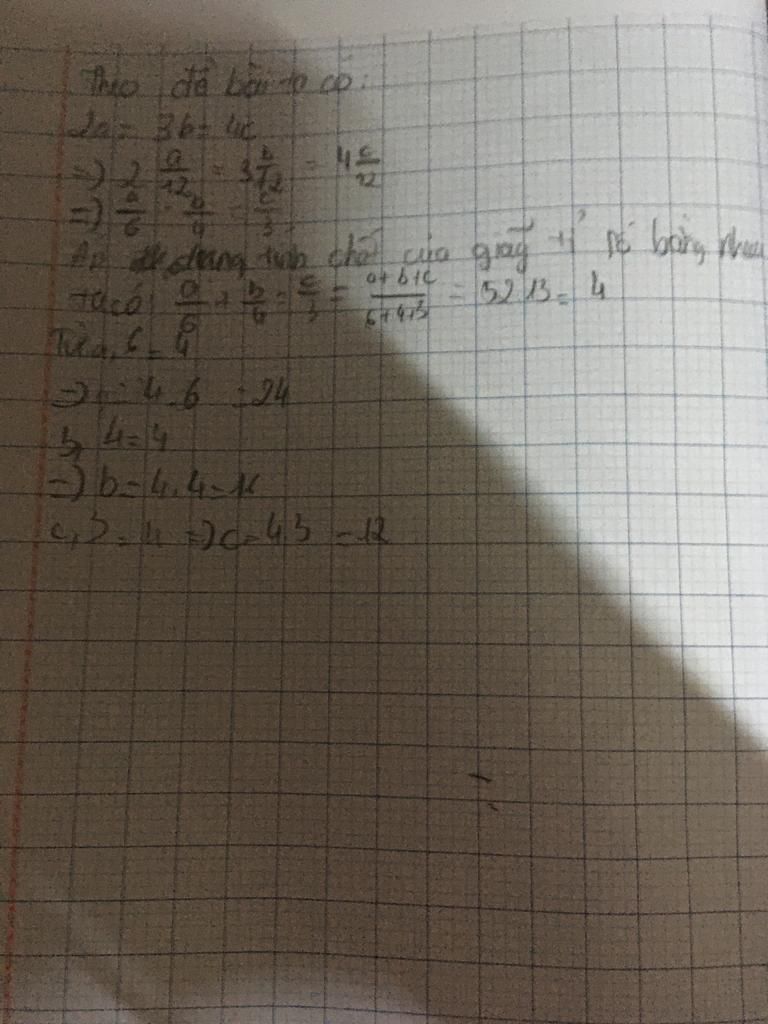 Theo đề bài ta có:
2a = 3b = 4c
=> 2 a/12 = 3 b/12 = 4 c/12
=> a/6 = b/4 = c/3
dụng tính chất của giãy tỉ số bằng nhau
ta có a/6 + b/6 = c/3 = a+b+c/6+4+3 = 52 13 = 4
Từ a, 6 = 4
=> = 4.6 = 24
b, 4 = 4
=> b = 4.4 = 16
c, 3 = 4 => c = 4 3 = 12